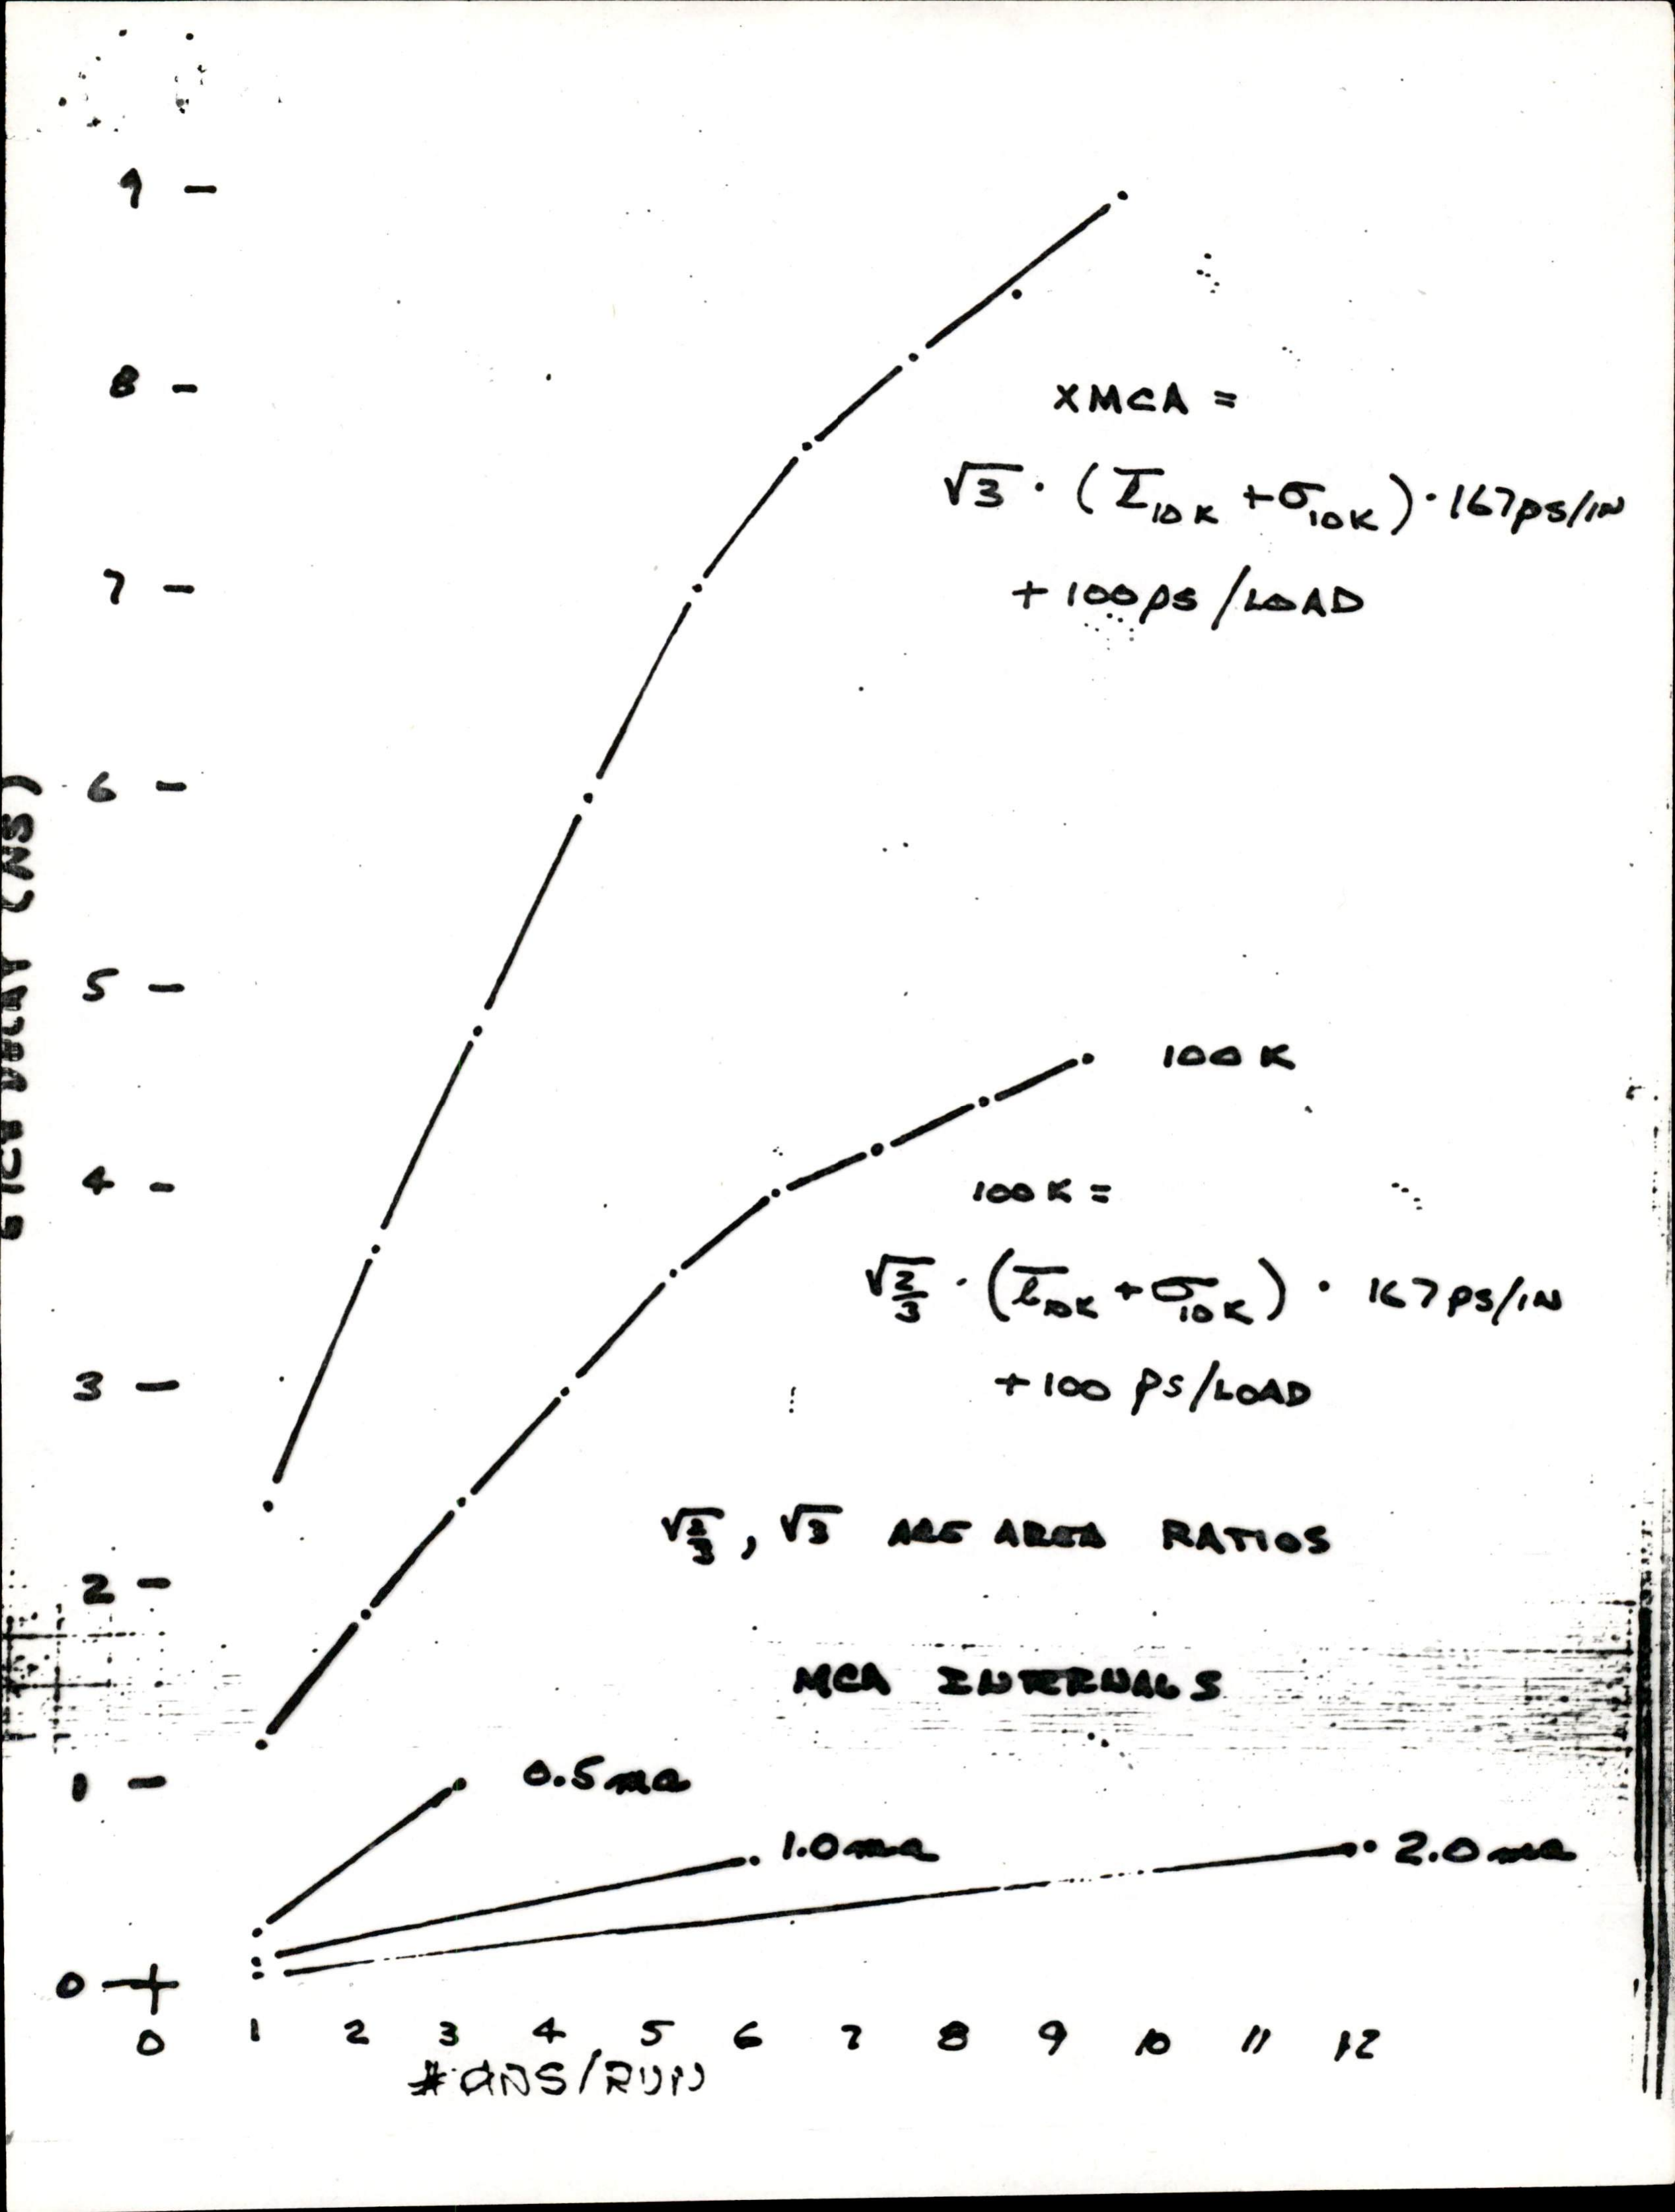 9 –
8 –
XMCA =
√3 · (l̅10K + σ10K) · 167ps/IN
+ 100ps/LOAD
7 –
6 –
(NS)
5 –
100K
4 –
100K =
√2/3 · (l̅10K + σ10K) · 167ps/IN
+100 ps/LOAD
3 –
√2/3, √3 ARE AREA RATIOS
2 –
MCA INTERNALS
1 –
0.5ma
1.0ma
2.0ma
0
0 1 2 3 4 5 6 7 8 9 10 11 12